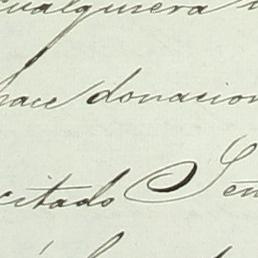 cualquiera
hace donacion
citado Señ